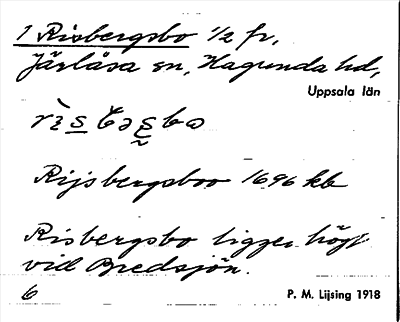 1 Risbergsbo 1/2 fr,
Järlåsa sn, Hagunda hd,
Uppsala län
Rijsbergsboo 1696 kb
Risbergsbo ligger högt
vid Bredsjön.
6 P. M. Lijsing 1918